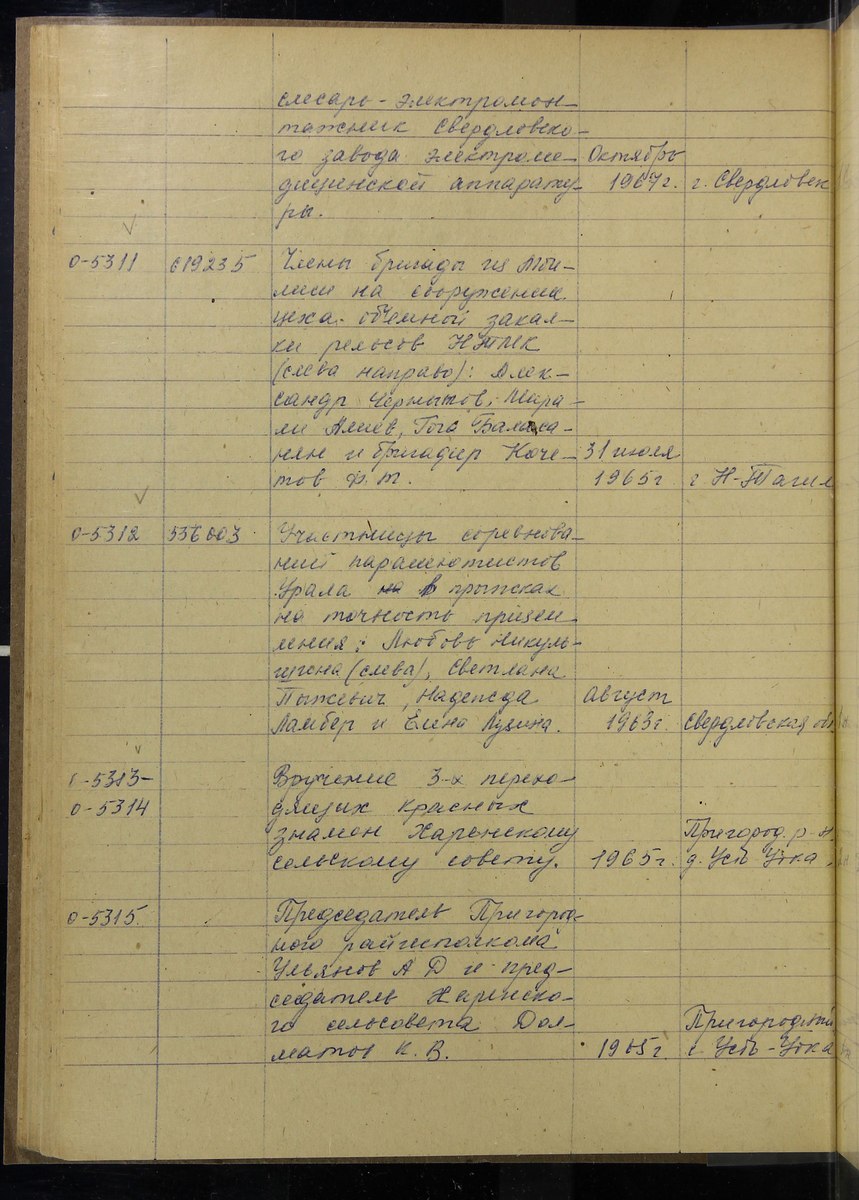 слесарь-электромон-
тажник Свердловско-
го завода электроме- Октябрь
дицинской аппарату- 1967г. г. Свердловск
ры.
0-5311 619235 Члены бригады из
на сооружении
цеха объемной закал-
ки рельсов НТМК
(слева направо): Алек-
сандр Чернышов,
Алиев, Гога Баласа-
нян и бригадир Коче- 31 июля
тов Ф.Т. 1965г г Н-Тагил
0-5312 536003 Участницы соревнова-
ний парашютистов
Урала на в прыжках
на точность призем-
ления: Любовь Никуль-
шина (слева), Светлана
Пыжевич, Надежда Август
Ламбер и Елена Лузина. 1963г. Свердловская обл
0-5313-
0-5314
Вручение 3-х перехо-
дящих Красных
знамен Харенскому Пригород. р-н
сельскому совету. 1965г. д. Усть-Утка
0-5315 Председатель Пригород-
ного райисполкома
Ульянов А Д и пред-
седатель Харенско-
го сельсовета Дол- Пригородный
матов К. В. 1965г. с Усть-Утка